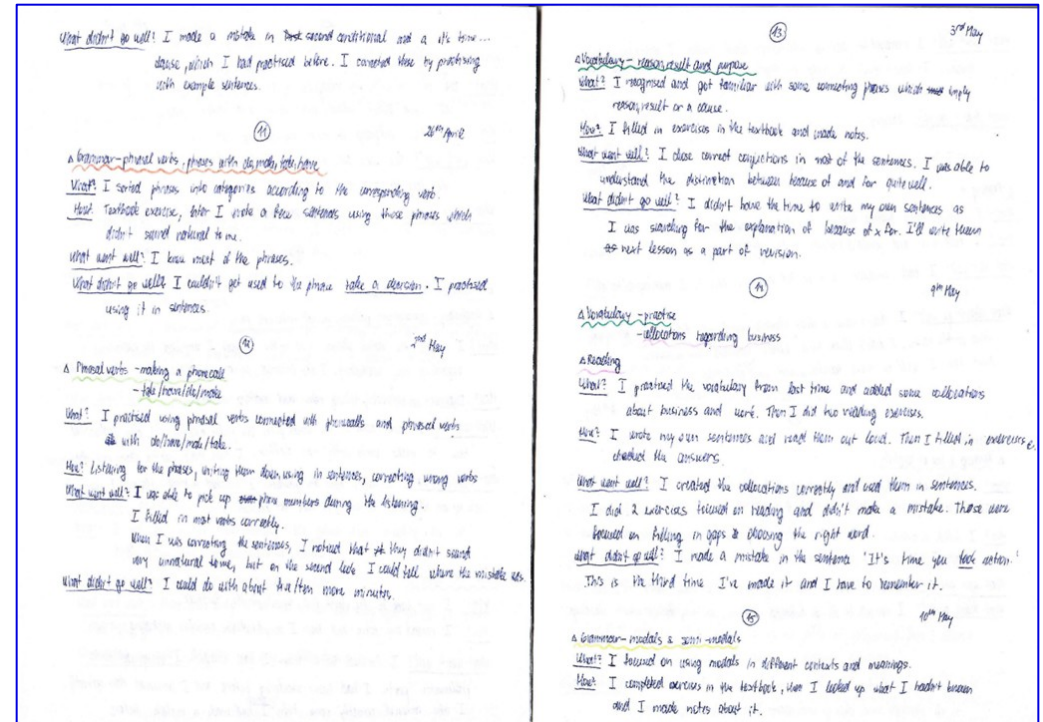 What didn't go well? I made a mistake in second conditional and a it's time...
clause, which I had practised before. I corrected these by practising
with example sentences.
11
26th April
Grammar - phrasal verbs, phrases with do, make, take, have
What? I sorted phrases into categories according to the corresponding verb.
How? Textbook exercise, later I wrote a few sentences using those phrases which
didn't sound natural to me.
What went well? I knew most of the phrases.
What didn't go well? I couldn't get used to the phrase take a decision. I practised
using it in sentences.
12
2nd May
Phrasal verbs - making a phonecall
- take/have/do/make
What? I practised using phrasal verbs connected with phonecalls and phrasal verbs
with do/have/make/take.
How? Listening for the phrases, writing them down, using in sentences, correcting wrong verbs
What went well? I was able to pick up phone numbers during the listening.
I filled in most verbs correctly.
When I was correcting the sentences, I noticed that they didn't sound
very unnatural to me, but on the second look I could tell where the mistake was.
What didn't go well? I could do with about five/ten more minutes.
13
3rd May
Vocabulary - reason, result and purpose
What? I recognised and got familiar with some connecting phrases which imply
reason, result or a cause.
How? I filled in exercises in the textbook and made notes.
What went well? I chose correct conjuctions in most of the sentences. I was able to
understand the distinction between because of and for quite well.
What didn't go well? I didn't have the time to write my own sentences as
I was searching for the explanation of because of x for. I'll write them
next lesson as a part of revision.
14
9th May
Vocabulary - practise
- collocations regarding business
Reading
What? I practised the vocabulary from last time and added some collocations
about business and work. Then I did two reading exercises.
How? I wrote my own sentences and read them out loud. Then I filled in exercises &
checked the answers.
What went well? I created the collocations correctly and used them in sentences.
I did 2 exercises focused on reading and didn't make a mistake. Those were
focused on filling in gaps & choosing the right word.
What didn't go well? I made a mistake in the sentence "It's time you took action."
This is the third time I've made it and I have to remember it.
15
10th May
Grammar - modals & semi-modals
What? I focused on using modals in different contexts and meanings.
How? I completed exercises in the textbook, then I looked up what I hadn't known
and I made notes about it.